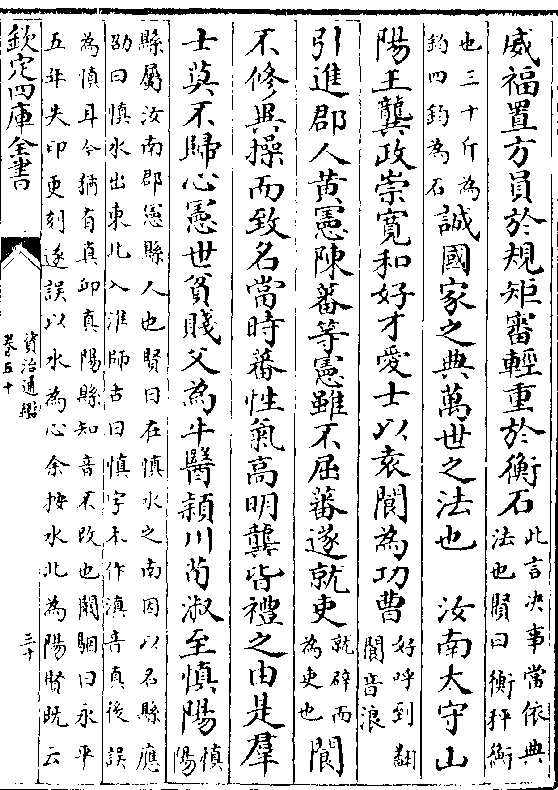 威福置方員於規矩審輕重於衡石此言決事當依典
法也賢曰衡秤衡
也三十斤為
鈞四鈞為石誠國家之典萬世之法也　汝南太守山
陽王龔政崇寬和好才愛士以袁閬為功曹好呼到翻
閬音浪
引進郡人黃憲陳蕃等憲雖不屈蕃遂就吏就辟而
為吏也閬
不修異操而致名當時蕃性氣高明龔皆禮之由是羣
士莫不歸心憲世貧賤父為牛醫潁川荀淑至慎陽慎
陽
縣屬汝南郡憲縣人也賢曰在慎水之南因以名縣應
劭曰慎水出東北入淮師古曰慎字本作滇音真後誤
為慎耳今猶有真卭真陽縣知音不改也闞駰曰永平
五年失印更刻遂誤以水為心余按水北為陽賢旣云
欽定四庫全書
資治通鑑
卷五十
三十